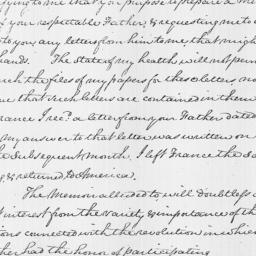 to me that you purpose to prepare a
of your respectable Father, & requesting me to
to you any letters from him to me, that migh
hands. The state of my health will not per
the files of my papers for those letters, no
that such letters are contained in them
France I recd. a letter from your Father dated
my answer to that letter was written on
the subsequent month. I left France the
& returned to America.
The Memoir alluded to will doubtless
interest from the variety & importance of th
connected with the revolution in which
had the honor of participating